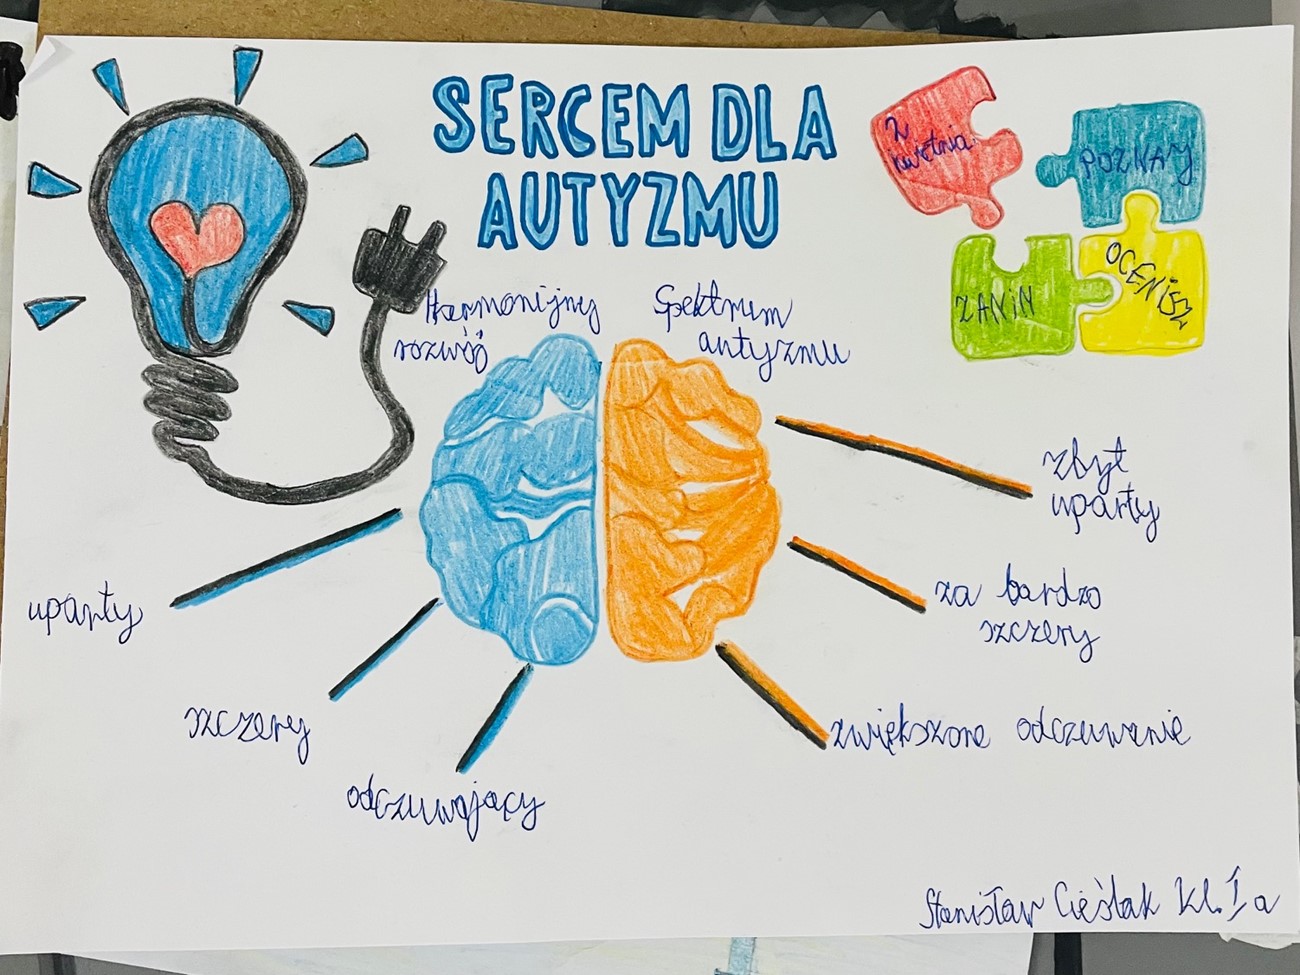 SERCEM DLA
AUTYZMU
2
kwietnia
POZNAJ
ZANIM
OCENISZ
Harmonijny
rozwój
Spektrum
autyzmu
uparty
szczery
odczuwający
zbyt
uparty
za bardzo
szczery
zwiększone odczuwanie
Stanisław Cieślak Kl. I a